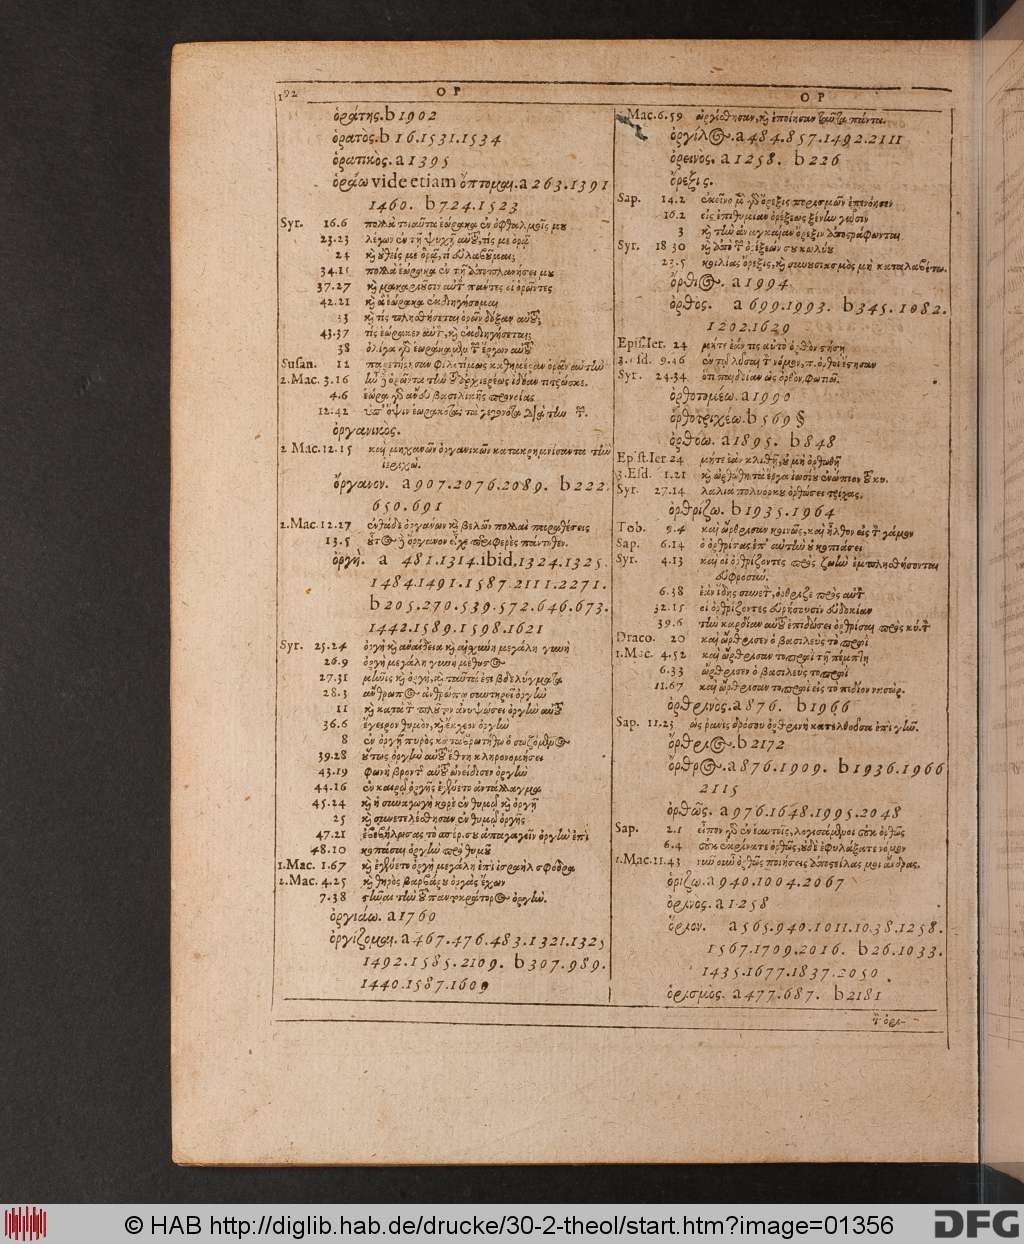 192
ΟΡ
ὁράτης. b 1902
ὁρατὸς. b 16. 1531. 1534
ὁρατικὸς. a 1395
ὁράω vide etiam ὄπτομαι. a 263. 1391
1460. b 724. 1523
Syr. 16.6 πολλὰ τοιαῦτα ἑώρακα ἐν ὀφθαλμοῖς μου
23.23 λέγων ἐν τῇ ψυχῇ αὐτοῦ, τίς με ὁρᾷ
24 καὶ οὐθείς με ὁρᾷ, τί εὐλαβοῦμαι;
34.11 πολλὰ ἑώρακα ἐν τῇ ἀποπλανήσει μου
37.27 καὶ μακαριοῦσιν αὐτὸν πάντες οἱ ὁρῶντες
42.21 καὶ ἃ ἑώρακα ἐκδιηγήσομαι
33 καὶ τίς πλησθήσεται ὁρῶν δόξαν αὐτοῦ;
43.37 τίς ἑώρακεν αὐτὸν, καὶ ἐκδιηγήσεται;
38 ὀλίγα γὰρ ἑωράκαμεν τῶν ἔργων αὐτοῦ
Susan. 12
2. Mac. 3.16
4.6
12.42
ὀργανικὸς.
2 Mac. 12.15 καὶ μηχανῶν ὀργανικῶν κατακρημνίσαντα τὴν
ἱεριχὼ.
ὄργανον. a 907. 2076. 2089. b 222.
650. 691
2. Mac. 12.27 ἐνθάδε ὀργάνων καὶ βελῶν πολλαὶ παραθέσεις
13.5
ὀργὴ. a 481. 1314. ibid. 1324. 1325.
1484. 1491. 1587. 2111. 2271.
b 205. 270. 539. 572. 646. 673.
1442. 1589. 1598. 1621
Syr. 25.24 ὀργὴ καὶ ἀναίδεια καὶ αἰσχύνη μεγάλη γυνὴ
26.9 ὀργὴ μεγάλη γυνὴ μέθυσος
27.31 μῆνις καὶ ὀργὴ, καὶ ταῦτά ἐστι βδελύγματα
28.3 ἄνθρωπος ἀνθρώπῳ συντηρεῖ ὀργὴν
11 καὶ κατὰ τὸν πλοῦτον ἀνυψώσει ὀργὴν αὐτοῦ
36.6 ἔγειρον θυμὸν, καὶ ἔκχεον ὀργὴν
8 ἐν ὀργῇ πυρὸς καταβρωθήτω ὁ σωζόμενος
39.28 οὕτως ὀργὴν αὐτοῦ ἔθνη κληρονομήσει
43.19 φωνὴ βροντῆς αὐτοῦ ὠνείδισεν ὀργὴν
44.16 ἐν καιρῷ ὀργῆς ἐγένετο ἀντάλλαγμα
45.24 καὶ ἡ συναγωγὴ κορὲ ἐν θυμῷ καὶ ὀργῇ
25 καὶ συνετελέσθησαν ἐν θυμῷ ὀργῆς
47.21
48.10 κοπάσαι ὀργὴν πρὸ θυμοῦ
1. Mac. 1.67 καὶ ἐγένετο ὀργὴ μεγάλη ἐπὶ ἰσραὴλ σφόδρα
2. Mac. 4.25 καὶ θηρὸς βαρβάρου ὀργὰς ἔχων
7.38 στῆναι τὴν τοῦ παντοκράτορος ὀργὴν.
ὀργιάω. a 1760
ὀργίζομαι. a 467. 476. 483. 1321. 1325
1492. 1585. 2109. b 307. 989.
1440. 1587. 1609
ΟΡ
Mac. 6.59 ὠργίσθησαν, καὶ ἐποίησαν ταῦτα πάντα.
ὀργίλος. a 484. 857. 1492. 2111
ὀρεινὸς. a 1258. b 226
ὄρεξις.
Sap. 14.2 ἐκεῖνο μὲν γὰρ ὄρεξις πορισμῶν ἐπενόησεν
16.2 εἰς ἐπιθυμίαν ὀρέξεως ξένην γεῦσιν
3 καὶ τὴν ἀναγκαίαν ὄρεξιν ἀποστρέφωνται
Syr. 18 30 καὶ ἀπὸ τῶν ὀρέξεών σου κωλύου
23.5 κοιλίας ὄρεξις, καὶ συνουσιασμὸς μὴ καταλαβέτω.
ὄρθιος. a 1994
ὀρθὸς. a 699. 1993. b 345. 1082.
1202. 1629
Epis. Ier. 24 μήτε ἐάν τις αὐτὸ ὀρθὸν στήσῃ
3. Esd. 9.46 ἐν τῷ λῦσαι τὸν νόμον, π. ὀρθοὶ ἔστησαν
Syr. 24.34
ὀρθοτομέω. a 1990
ὀρθοτριχέω. b 569 §
ὀρθόω. a 1895. b 848
Epist. Ier 24 μήτε ἐὰν κλιθῇ, οὐ μὴ ὀρθωθῇ
3. Esd. 1.21
Syr. 27.14 λαλιὰ πολυόρκου ὀρθώσει τρίχας.
ὀρθρίζω. b 1935. 1964
Tob. 9.4 καὶ ὤρθρισαν κοινῶς, καὶ ἦλθον εἰς τὸν γάμον
Sap. 6.14 ὁ ὀρθρίσας ἐπ' αὐτὴν οὐ κοπιάσει
Syr. 4.13 καὶ οἱ ὀρθρίζοντες πρὸς ζωὴν ἐμπλησθήσονται
εὐφροσύν.
6.38 ἐὰν ἴδῃς συνετὸν, ὄρθριζε πρὸς αὐτὸν
32.15 οἱ ὀρθρίζοντες εὑρήσουσιν εὐδοκίαν
39.6 τὴν καρδίαν αὐτοῦ ἐπιδώσει ὀρθρίσαι πρὸς κύ. τὸν
Draco. 20 καὶ ὤρθρισεν ὁ βασιλεὺς τοπρωῒ
1. Mac. 4.52 καὶ ὤρθρισαν τοπρωῒ τῇ πέμπτῃ
6.33 ὤρθρισεν ὁ βασιλεὺς τοπρωῒ
11.67 καὶ ὤρθρισαν τοπρωῒ εἰς τὸ πεδίον νασώρ.
ὀρθρινός. a 876. b 1966
Sap. 11.23 ὡς ῥανὶς δρόσου ὀρθρινὴ κατελθοῦσα ἐπὶ γῆν.
ὄρθριος. b 2172
ὄρθρος. a 876. 1909. b 1936. 1966
2115
ὀρθῶς. a 976. 1648. 1995. 2048
Sap. 2.1 εἶπον γὰρ ἐν ἑαυτοῖς, λογισάμενοι οὐκ ὀρθῶς
6.4 οὐκ ἐκρίνατε ὀρθῶς, οὐδὲ ἐφυλάξατε νόμον
1. Mac. 11.43 νῦν οὖν ὀρθῶς ποιήσεις ἀποστείλας μοι ἄνδρας.
ὁρίζω. a 940. 1004. 2067
ὀρινός. a 1258
ὅριον. a 565. 940. 1011. 1038. 1258.
1567. 1709. 2016. b 26. 1033.
1435. 1677. 1837. 2050
ὁρισμὸς. a 477. 687. b 2181
© HAB http://diglib.hab.de/drucke/30-2-theol/start.htm?image=01356
DFG